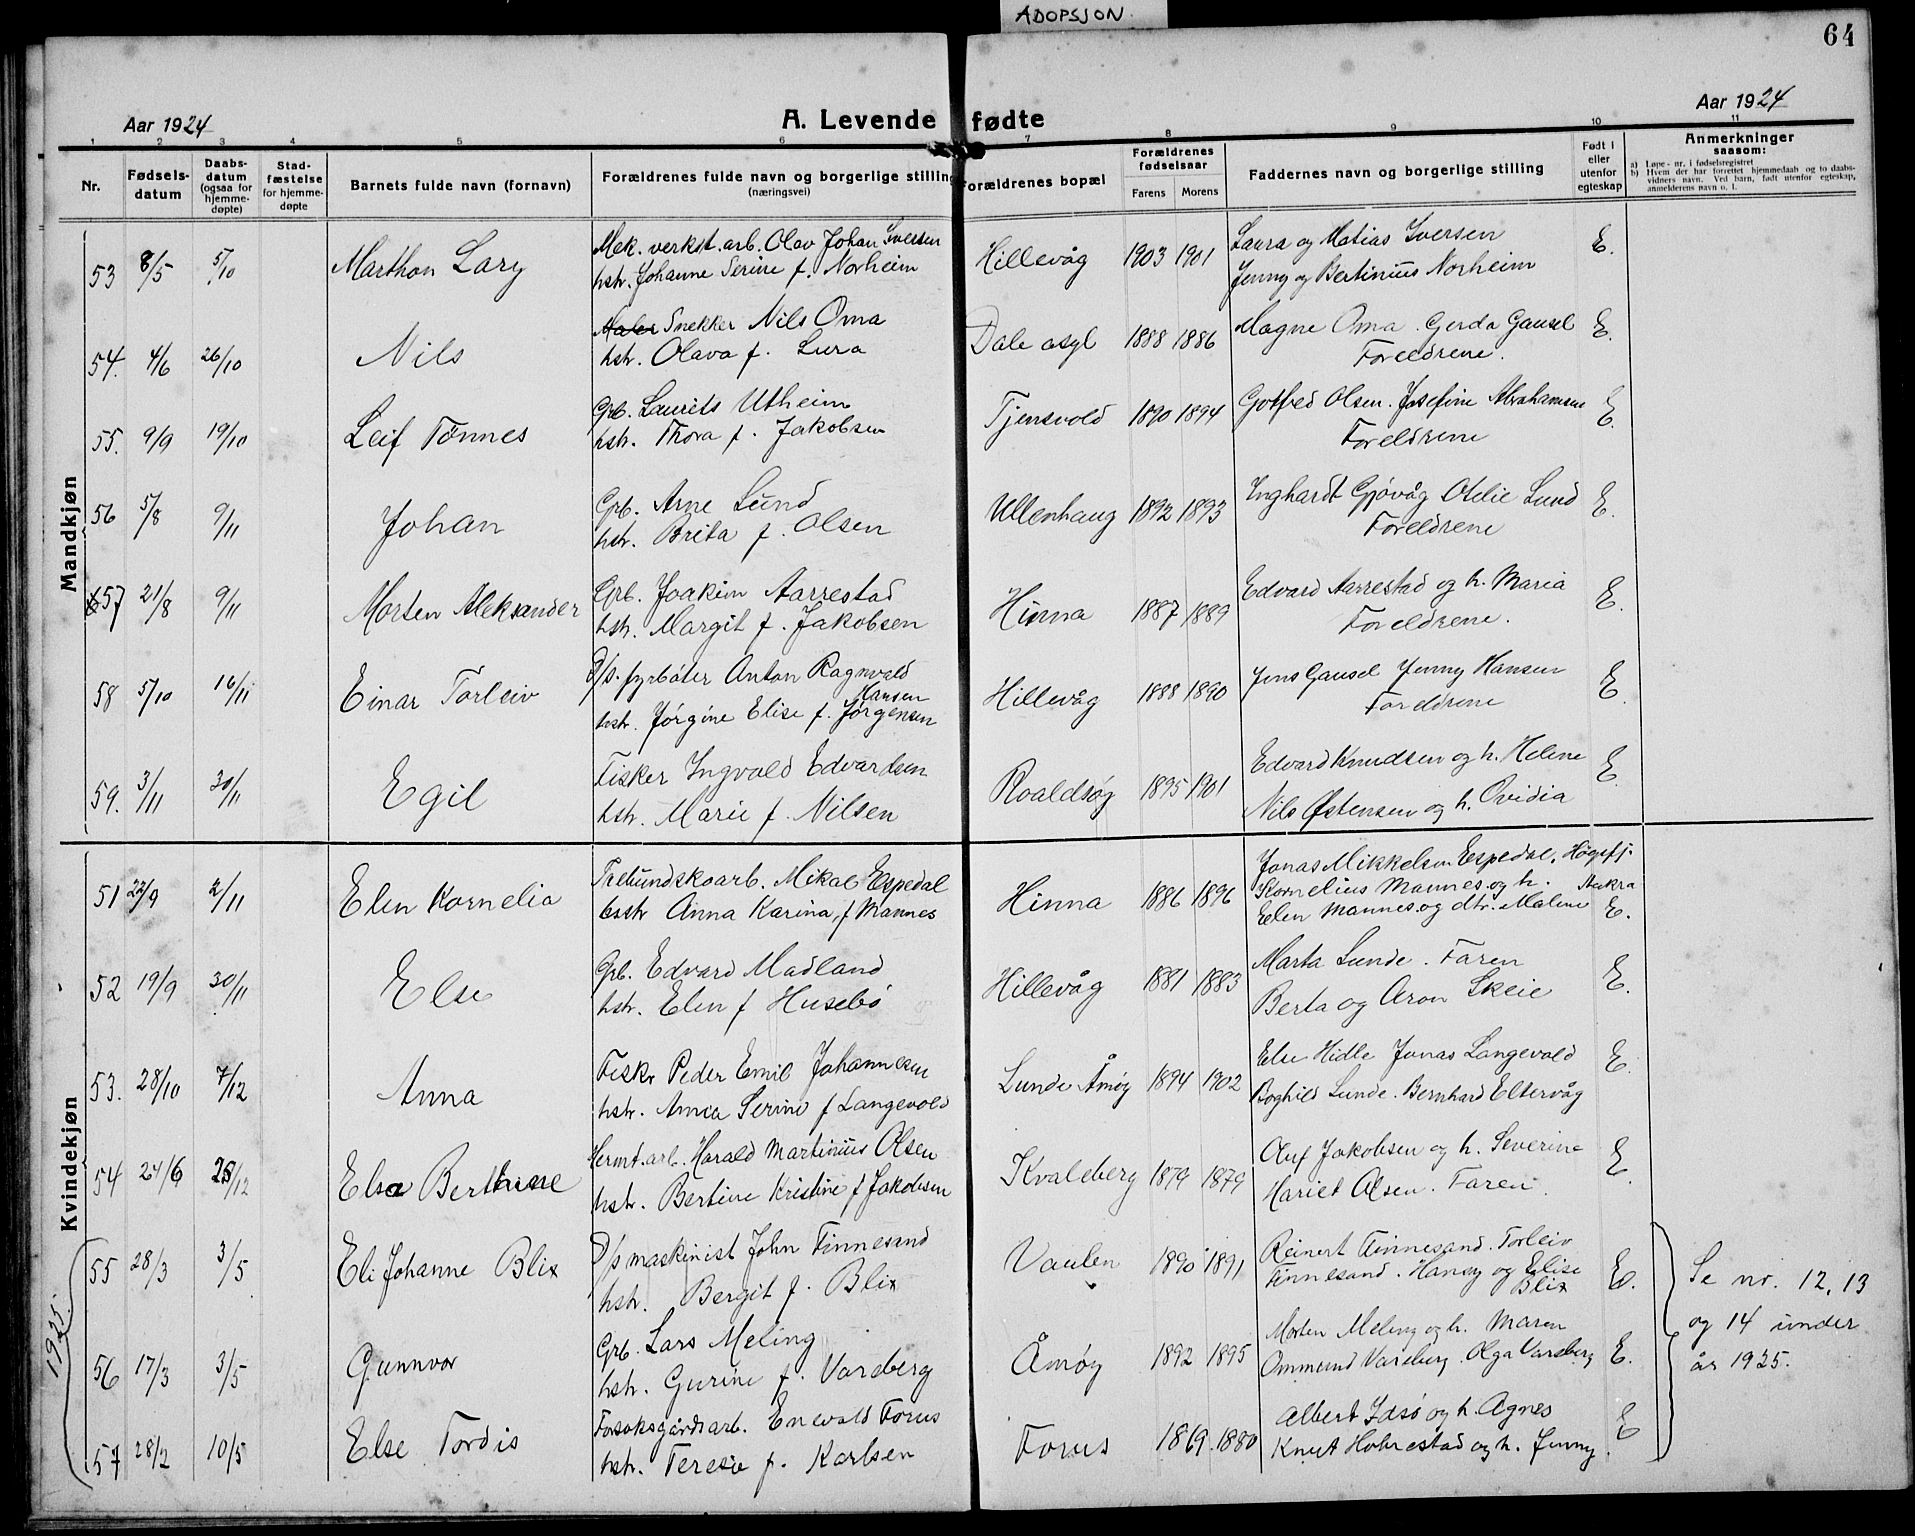 ADOPSJON.
64
Aar 1924
A. Levende fødte
Aar 1924
1 2 3 4 5 6 7 8 9 10 11
Nr.
Fødsels-
datum
Daabs-
datum
(ogsaa for
hjemme-
døpte)
Stad-
fæstelse
for hjemme-
døpte
Barnets fulde navn (fornavn)
Forældrenes fulde navn og borgerlige stilling
(næringsvei)
Forældrenes bopæl
Forældrenes
fødselsaar
Farens Morens
Faddernes navn og borgerlige stilling
Født i
eller
utenfor
egteskap
Anmerkninger
saasom:
a) Løpe-nr. i fødselsregistret
b) Hvem der har forrettet hjemmedaab og to daabs-
vidners navn. Ved barn, født utenfor egteskap,
anmelderens navn o. l.
Mandkjøn
53 8/5 5/10 Marthon Lary
Mek. verkst. arb. Olav Johan Iversen
hstr. Johanne Serine f. Norheim
Hillevåg 1903 1901
Laura og Matias Iversen
Jenny og Bertinius Norheim
E.
54. 4/6 26/10 Nils
Maler Snekker Nils Oma
hstr. Olava f. Lura
Dale asyl 1888 1886
Magne Oma. Gerda Gausel
Foreldrene.
E.
55. 9/9 19/10 Leif Tønnes
Grb. Laurits Utheim
hstr. Thora f. Jakobsen
Tjensvold 1890 1894
Gotfred Olsen. Josefine Abrahamsen
Foreldrene
E.
56 5/8 9/11 Johan
Grb. Arne Lund
hstr. Brita f. Olsen
Ullenhaug 1892 1893
Inghardt Gjøvåg Otelie Lund
Foreldrene
E.
57 21/8 9/11 Morten Aleksander
Grb. Joakim Aarrestad
hstr. Margit f. Jakobsen
Hinna 1887 1889
Edvard Aarrestad og h. Maria
Foreldrene.
E.
58 5/10 16/11 Einar Torleiv
D/s. fyrbøter Anton Ragnvald
Hansen
hstr. Jørgine Elise f. Jørgensen
Hillevåg 1888 1890
Jens Gausel Jenny Hansen
Foreldrene
E.
59. 3/11 30/11 Egil
Fisker Ingvald Edvardsen
hstr. Marie f. Nilsen
Roaldsøy 1895 1901
Edvard Knudsen og h. Helene
Nils Østensen og h. Ovidia
E.
Kvindekjøn
51 22/9 2/11 Elen Kornelia
Trebundskoarb. Mikal Espedal
hstr Anna Karina, f Mannes
Hinna 1886 1896
Jonas Mikkelsen Espedal, Høgsfj.
Kornelius Mannes og h. Aukra
Eelen Mannes og dtr. Malene
E.
52 19/9 30/11 Else
Grb. Edvard Madland
hstr. Elen f Husebø
Hillevåg 1881 1883
Marta Lunde. Faren
Berta og Aron Skeie
E.
53. 28/10 7/12 Anna
Fiskr Peder Emil Johannesen
hstr. Anna Serine f Langevold
Lunde Åmøy 1894 1902
Else Hidle Jonas Langevold
Boghild Lunde. Bernhard Eltervåg
E.
54 24/6 /12 Elsa Berthine
Hermt. arb. Harald Martinius Olsen
hstr. Bertine Kristine f Jakobsen
Kvaleberg 1879 1879
Oluf Jakobsen og h. Severine
Hariet Olsen. Faren.
E.
1925.
55 28/3 3/5 Eli Johanne Blix
D/s maskinist John Finnesand
hstr. Bergit f. Blix
Vaulen 1890 1891
Reinert Finnesand. Torleiv
Finnesand. Hansy og Elise
Blix
E.
Se nr. 12, 13
og 14 under
år 1925.
56 17/3 3/5 Gunnvor
Grb. Lars Meling
hstr. Gurine f. Vareberg
Åmøy 1892 1895
Morten Meling og h. Maren
Ommund Vareberg. Olga Vareberg
E.
57 28/2 10/5 Else Tordis
Forsøksgårdsarb. Enevald Forus
hstr. Teresie f. Karlsen
Forus 1869. 1880
Albert Idsø og h. Agnes
Knut Hobrestad og h. Jenny.
E